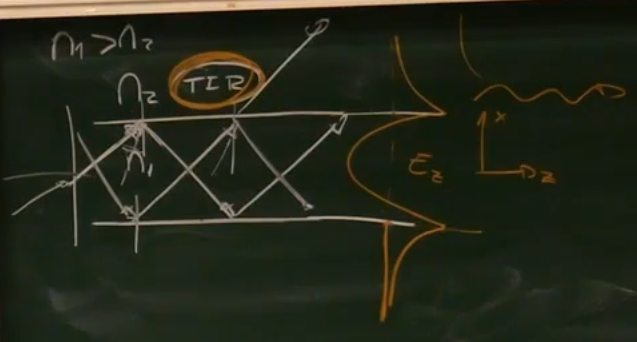 n₁ > n₂
n₂
TIR
n₁
E_z
x
z